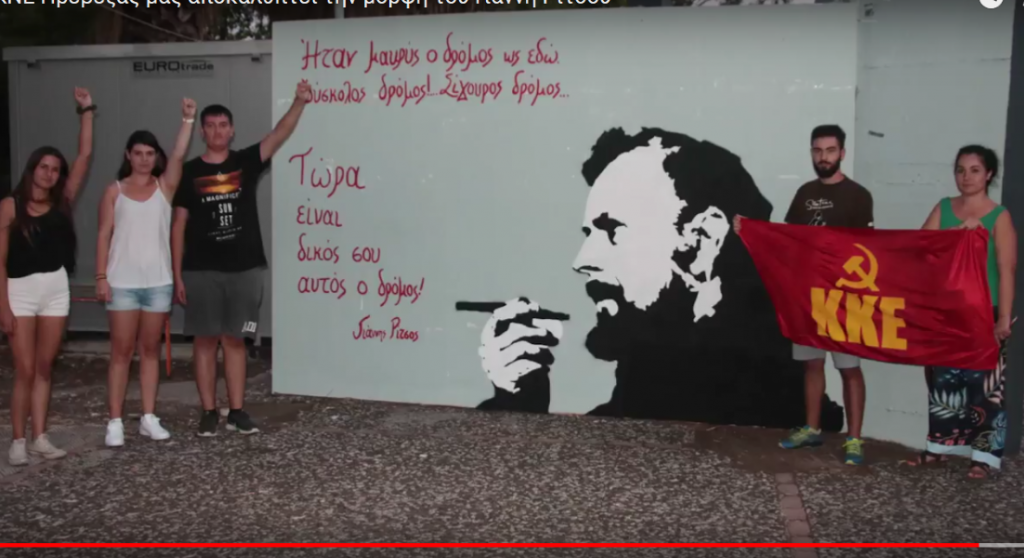 ΚΝΕ Πρέβεζας μας αποκαλύπτει την μορφή του Γιάννη Ρίτσου
EUROtrade
Ήταν μακρύς ο δρόμος ως εδώ.
Δύσκολος δρόμος!...Σίγουρος δρόμος...
Τώρα
είναι
δικός σου
αυτός ο δρόμος!
Γιάννης Ρίτσος
SUN
SET
ΚΚΕ